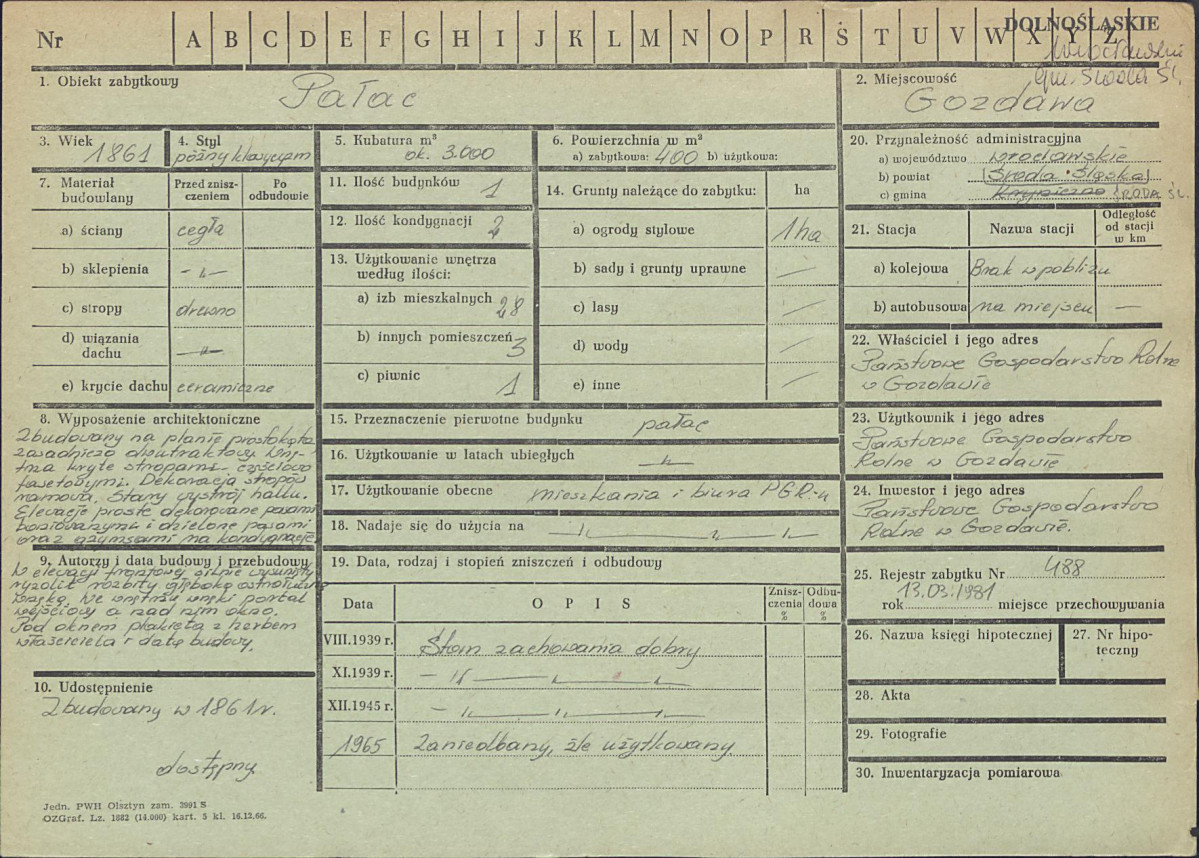 Nr A B C D E F G H I J K L M N O P R S T U V W X Y Z
DOLNOŚLĄSKIE
wrocławskie
gm. Środa Śl.
1. Obiekt zabytkowy
Pałac
2. Miejscowość
Gozdawa
3. Wiek
1861
4. Styl
późny klasycyzm
5. Kubatura m³
ok. 3.000
6. Powierzchnia w m²
a) zabytkowa: 400 b) użytkowa:
7. Materiał budowlany
Przed zniszczeniem
Po odbudowie
a) ściany cegła
b) sklepienia - " -
c) stropy drewno
d) wiązania dachu - " -
e) krycie dachu ceramiczne
8. Wyposażenie architektoniczne
Zbudowany na planie prostokąta
zasadniczo dwutraktowy. Wnę-
trza kryte stropami częściowo
fasetowymi. Dekoracja stropów
ramowa. Stary wystrój hallu.
Elewacje proste dekorowane pasami
boniowanymi i dzielone pasami
oraz gzymsami na kondygnacje
9. Autorzy i data budowy i przebudowy
W elewacji frontowej silnie wysunięty
ryzalit rozbity głęboką ostrołukową
wnęką. We wnętrzu wnęki portal
wejściowy a nad nim okno.
Pod oknem plakieta z herbem
właściciela i datą budowy.
10. Udostępnienie
Zbudowany w 1861 r.
dostępny
11. Ilość budynków 1
12. Ilość kondygnacji 2
13. Użytkowanie wnętrza według ilości:
a) izb mieszkalnych 28
b) innych pomieszczeń 3
c) piwnic 1
14. Grunty należące do zabytku: ha
a) ogrody stylowe 1 ha
b) sady i grunty uprawne —
c) lasy —
d) wody —
e) inne —
15. Przeznaczenie pierwotne budynku pałac
16. Użytkowanie w latach ubiegłych - " -
17. Użytkowanie obecne mieszkania i biura PGR-u
18. Nadaje się do użycia na - " - " - " -
19. Data, rodzaj i stopień zniszczeń i odbudowy
Data
O P I S
Zniszczenia %
Odbudowa %
VIII.1939 r. Stan zachowania dobry
XI.1939 r. - " - " - " -
XII.1945 r. - " - " - " -
1965 Zaniedbany, źle użytkowany
20. Przynależność administracyjna
a) województwo wrocławskie
b) powiat (Środa Śląska)
c) gmina ŚRODA ŚL.
21. Stacja
Nazwa stacji
Odległość od stacji w km
a) kolejowa Brak w pobliżu
b) autobusowa na miejscu —
22. Właściciel i jego adres
Państwowe Gospodarstwo Rolne
w Gozdawie
23. Użytkownik i jego adres
Państwowe Gospodarstwo
Rolne w Gozdawie
24. Inwestor i jego adres
Państwowe Gospodarstwo
Rolne w Gozdawie.
25. Rejestr zabytku Nr 488
rok 13.03.1981 miejsce przechowywania
26. Nazwa księgi hipotecznej
27. Nr hipoteczny
28. Akta
29. Fotografie
30. Inwentaryzacja pomiarowa
Jedn. PWH Olsztyn zam. 3991 S
OZGraf. Lz. 1882 (14.000) kart. 5 kl. 16.12.66.